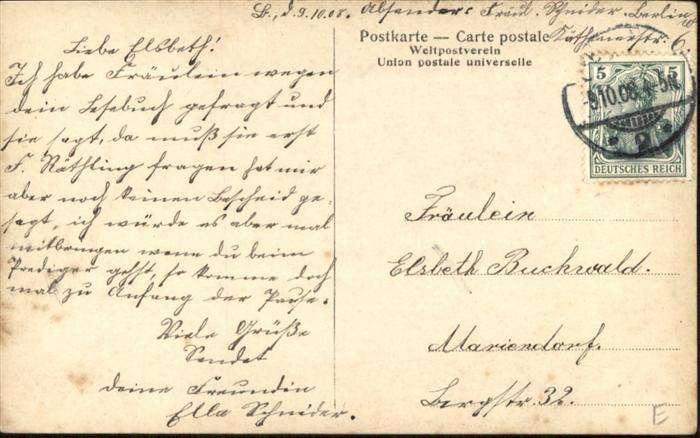 B., d. 9.10.08. Absender: Fräul. Schnider. Berlin
6.
Postkarte — Carte postale
Weltpostverein
Union postale universelle
5 5
9.10.08. 4-5N
2
DEUTSCHES REICH
Liebe Elsbeth!
Ich habe Fräulein wegen
dein Lesebuch gefragt und
sie sagt, da muß sie erst
F. Käthling fragen hat mir
aber noch keinen Bescheid ge-
sagt, ich würde es aber mal
mitbringen wenn du beim
Prediger gehst, so komme doch
mal zu Anfang der Pause.
Viele Grüße
Sendet
deine Freundin
Ella Schnider.
Fräulein
Elsbeth Buchwald.
Mariendorf.
Bergstr. 32.
E